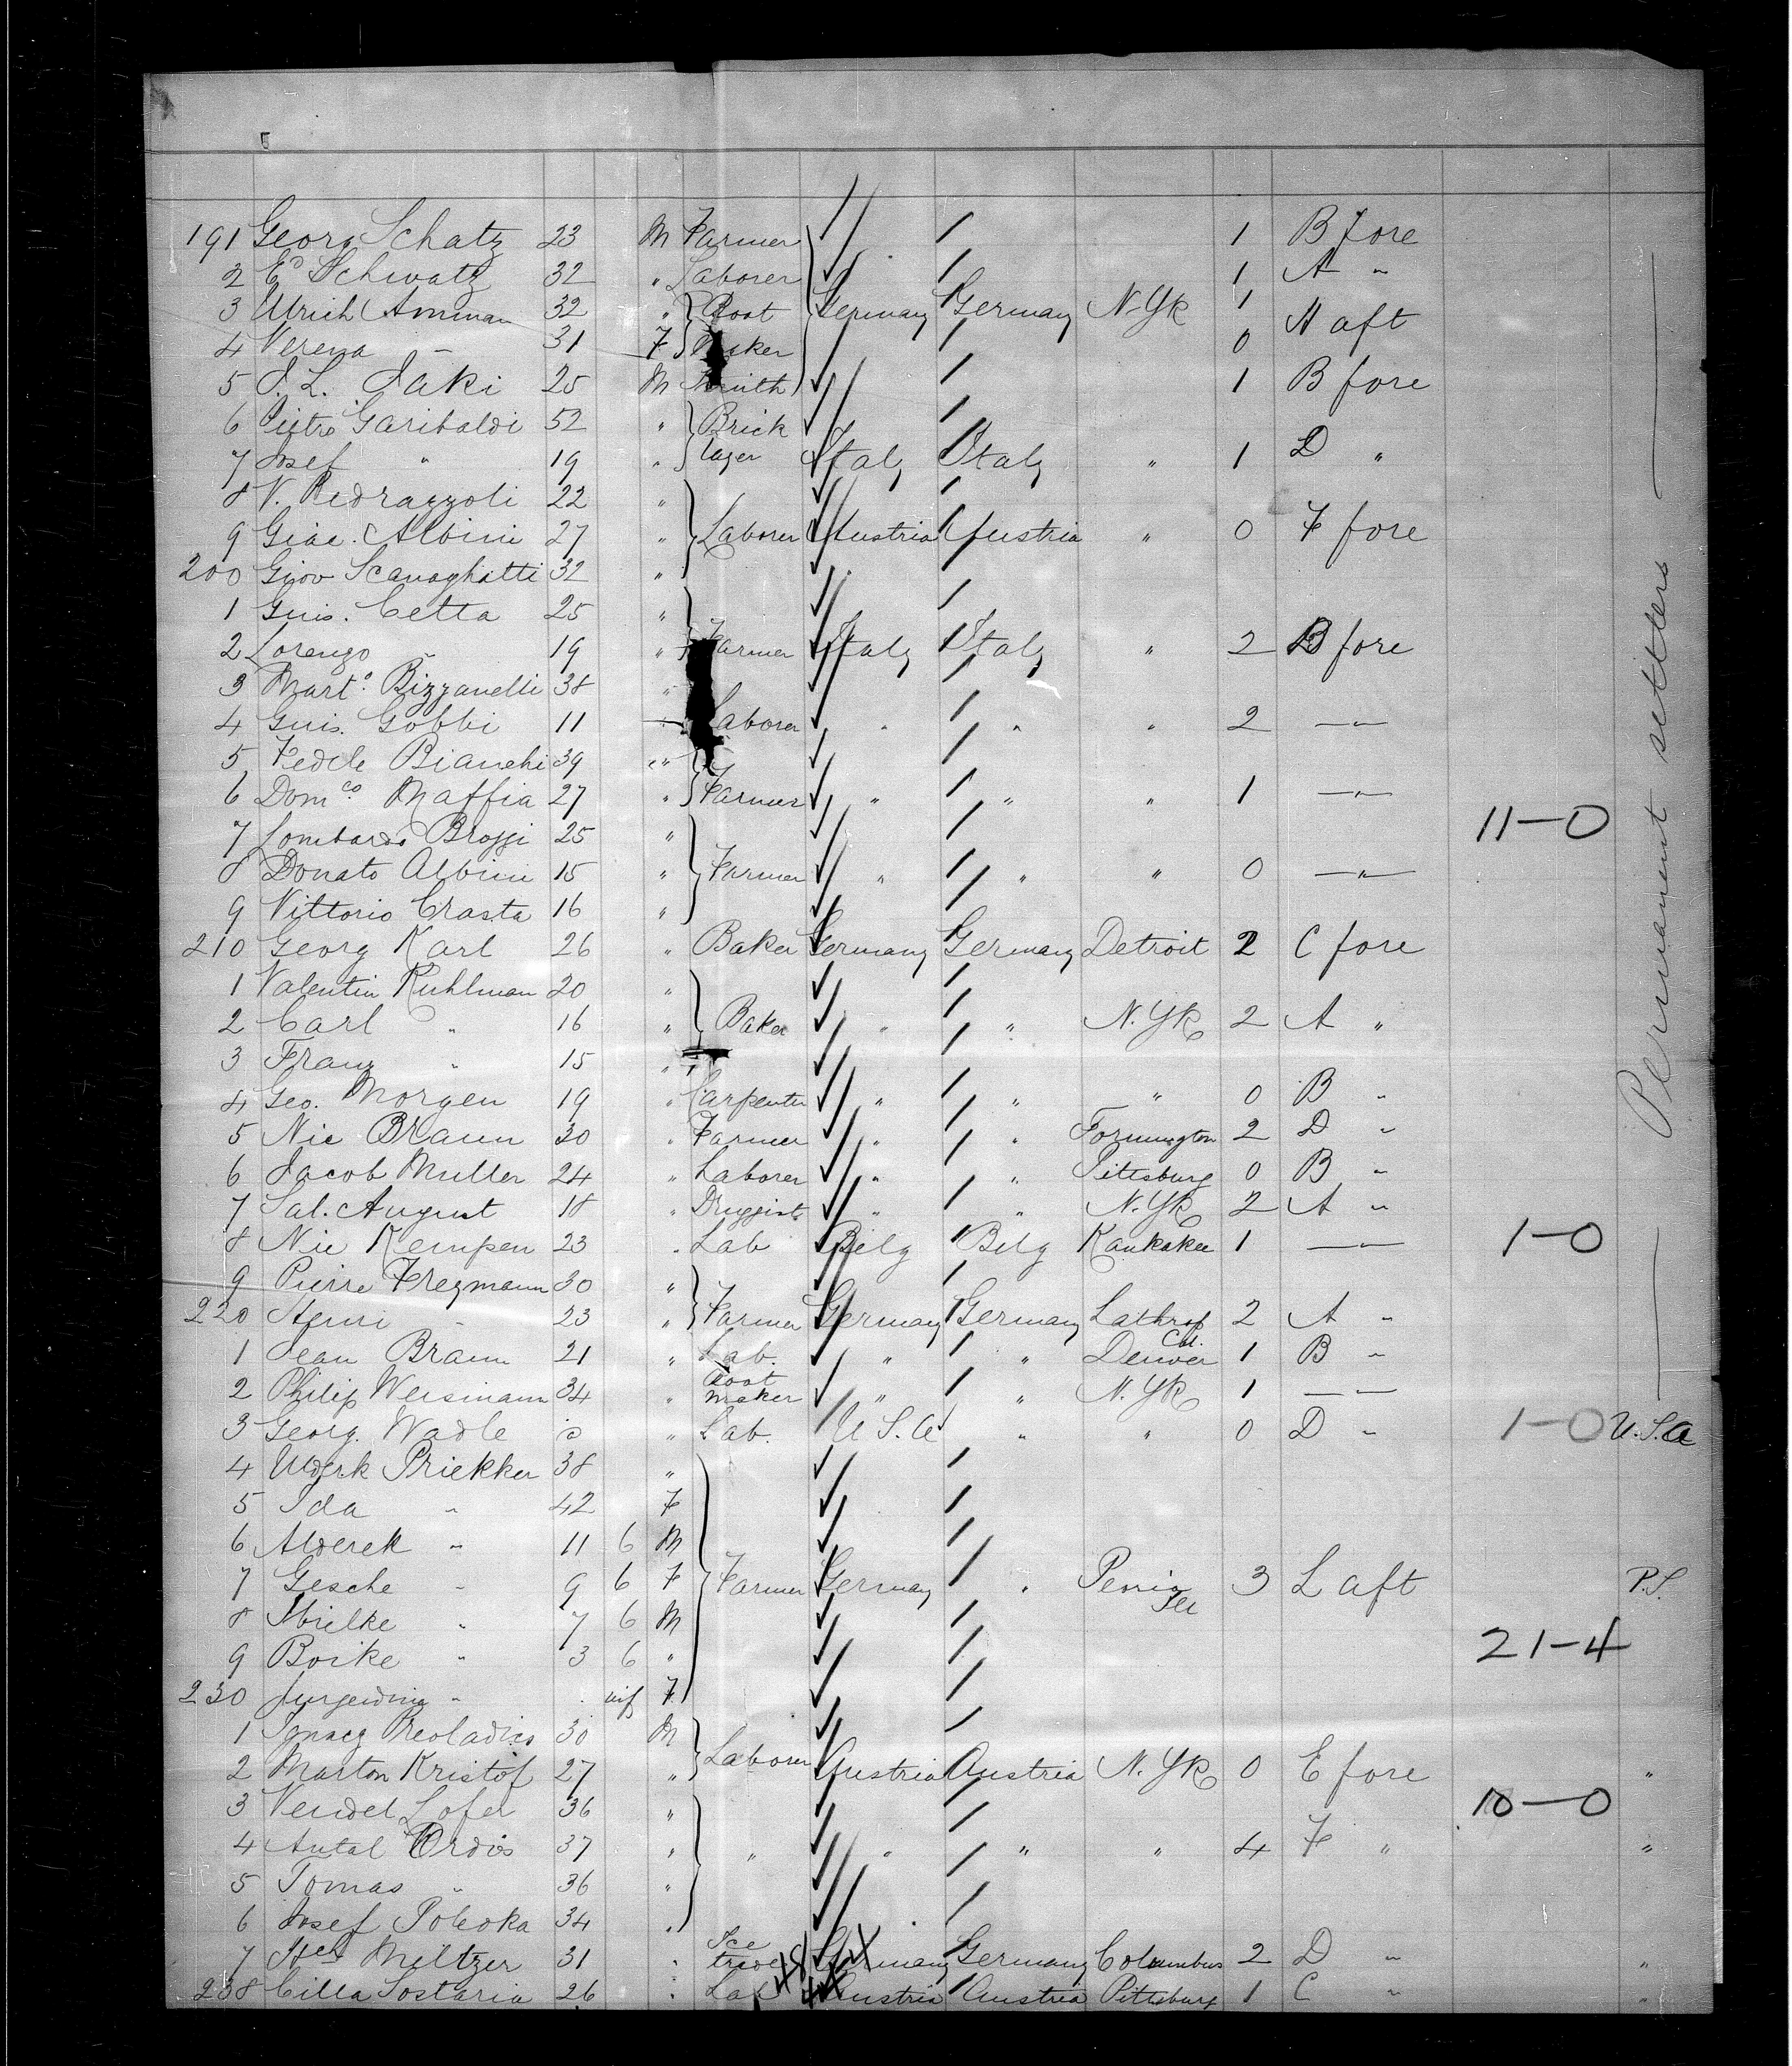 191 Georg Schatz 23 M Farmer 1 B fore
2 Ed Schwatz 32 " Laborer 1 A "
3 Ulrich Amman 32 " Boot Germany Germany N. Yk 1 H aft
4 Verena " 31 F Maker 0
5 J. L. Jaki 25 M Smith 1 B fore
6 Pietro Garibaldi 52 " Brick
7 Josef " 19 " layer Italy Italy " 1 D "
8 V. Pedrazzoli 22 "
9 Giac. Albini 27 " Laborer Austria Austria " 0 F fore
200 Giov Scanaghatti 32 "
1 Guis. Cetta 25 "
2 Lorenzo " 19 " Farmer Italy Italy " 2 B fore
3 Marto. Bizzanelli 38 "
4 Guis. Gobbi 11 " Laborer " " " 2 — " —
5 Fedele Bianchi 39 "
6 Domco. Maffia 27 " Farmer " " " 1 — " —
11—0
7 Lombardo Broggi 25 "
8 Donato Albini 15 " Farmer " " " 0 — " —
9 Vittorio Crasta 16 "
210 Georg Karl 26 " Baker Germany Germany Detroit 2 C fore
1 Valentin Kuhlman 20 "
2 Carl " 16 " Baker " " N. Yk 2 A "
3 Franz " 15 "
4 Geo. Morgen 19 " Carpenter " " " 0 B "
5 Nic Braun 30 " Farmer " " Formington 2 D "
6 Jacob Muller 24 " Laborer " " Pittsburg 0 B "
7 Sal. August 18 " Druggist " " N. Yk 2 A "
8 Nic Kempen 23 " Lab Belg Belg Kankakee 1 — " — 1—0
9 Pierre Fregmann 30 "
220 Henri " 23 " Farmer Germany Germany Lathrop 2 A "
1 Jean Braun 21 " Lab. " " Denver Col. 1 B "
2 Philip Weismann 34 " Boot maker " " N. Yk 1 — " —
3 Georg. Wadle " Lab. U. S. A " " 0 D " 1—0 U. S. A
4 Priekker 38 "
5 Ida " 42 F
6 Alderek " 11 6 M
7 Gesche " 9 6 F Farmer Germany " Peoria Ill 3 L aft P. S.
8 " 7 6 M
9 Boike " 3 6 "
21—4
230 " inf F
1 Ignacz 30 M
2 Marton Kristof 27 " Laborer Austria Austria N. Yk 0 E fore "
3 Vendel Lofer 36 "
10—0
4 Antal Ordos 37 " " " " " 4 F " "
5 Tomas " 36 "
6 Josef Poboka 34 "
7 Meltzer 31 " Ice trade Germany Germany Columbus 2 D " "
238 Cilla Sostaria 26 " Lab Austria Austria Pittsburg 1 C " "
Permanent settlers